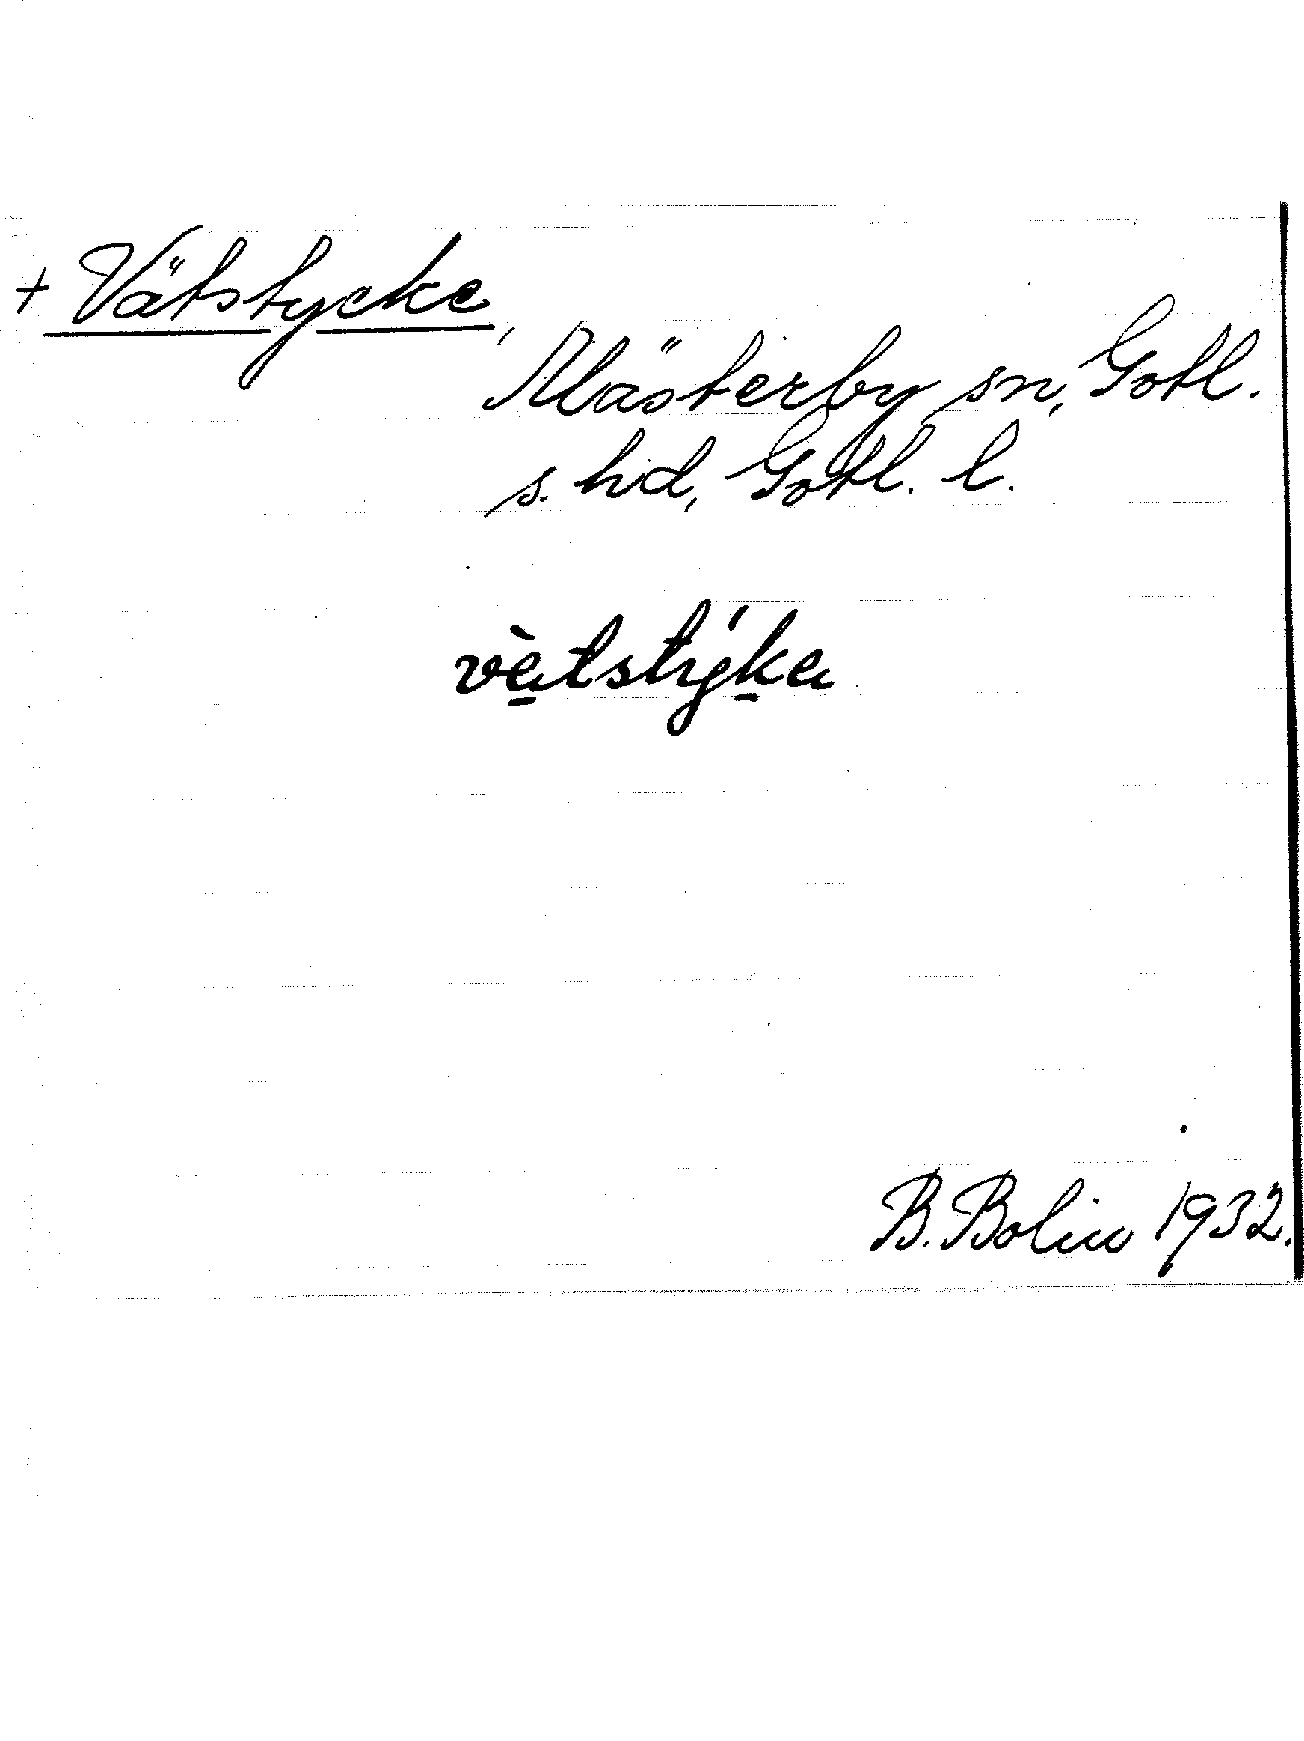 + Vätstycke,
Mästerby sn, Gotl.
s. hd, Gotl. l.
vè̱tstýḵa
B. Bolin 1932.